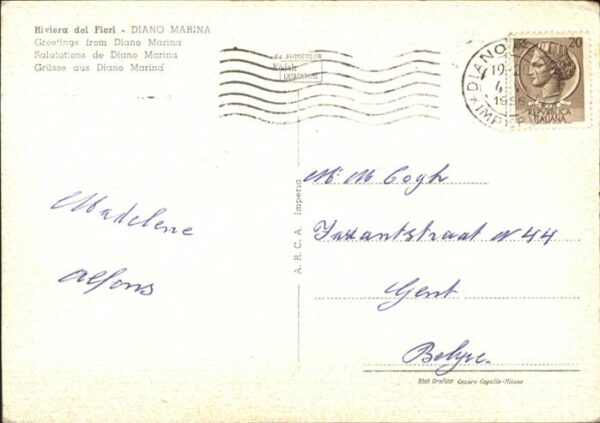 Riviera dei Fiori - DIANO MARINA
Greetings from Diano Marina
Salutations de Diano Marina
Grüsse aus Diano Marina
da FOTOCOLOR
Kodak
EKTACHROME
DIANO
19-
4
195
IMP
20
REPUBBLICA
ITALIANA
Madelene
Alfons
A. R. C. A. Imperia
Mr M Cogh
Fazantstraat N 44
Gent
Belgie
Stab. Grafico Cesare Capello-Milano